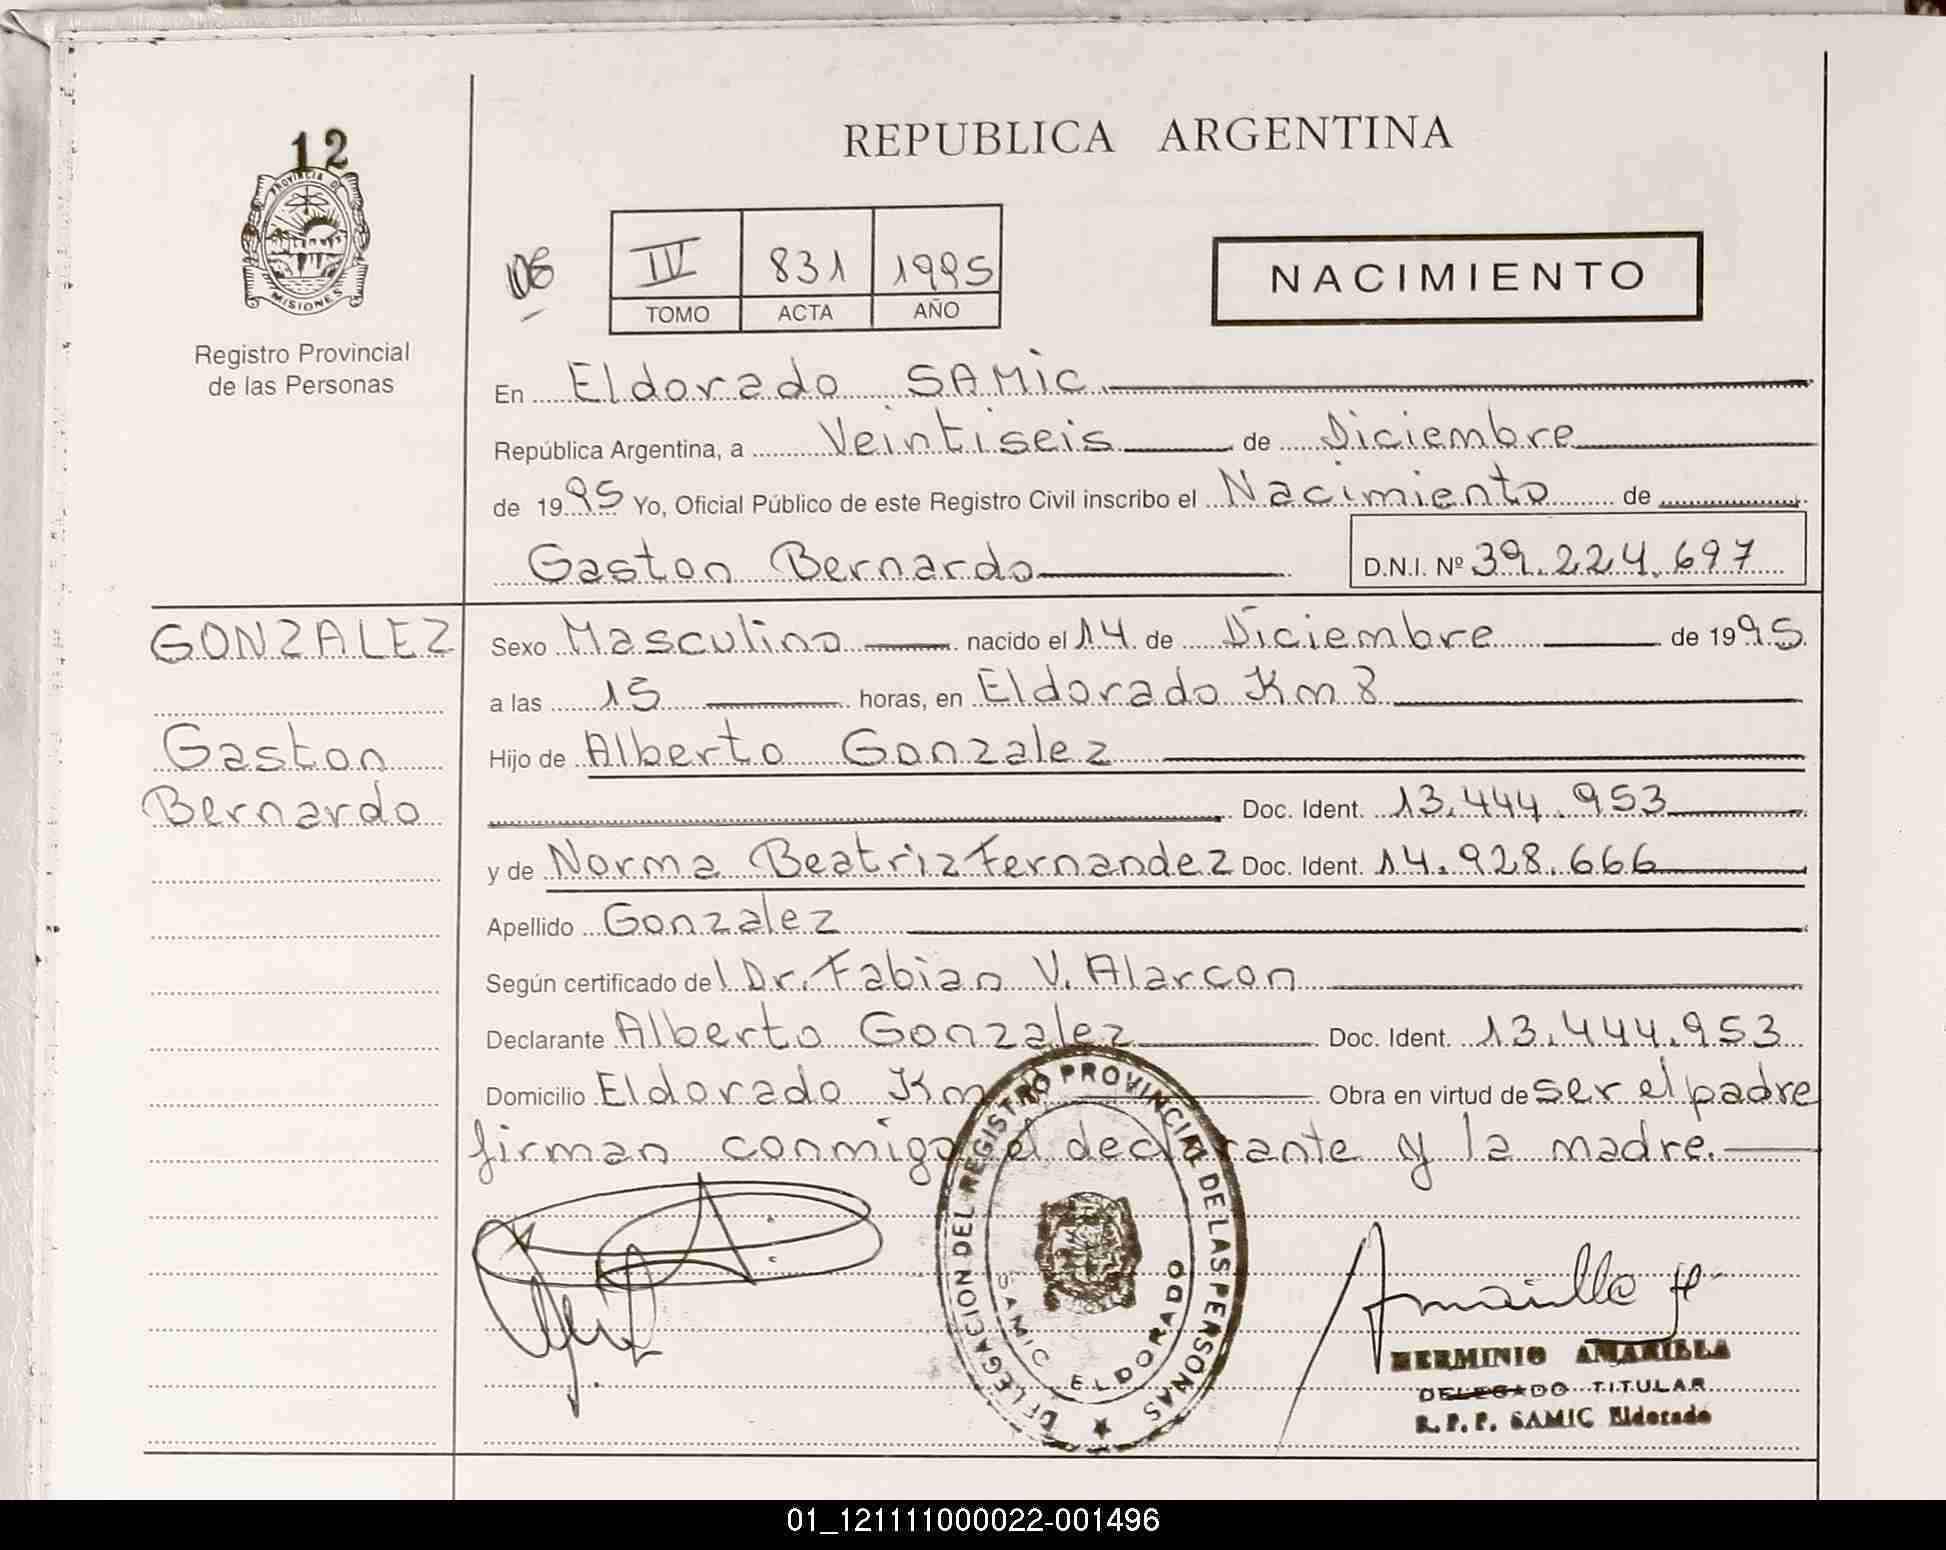 REPUBLICA ARGENTINA
12
PROVINCIA DE
MISIONES
Registro Provincial
de las Personas
06
IV 831 1995
TOMO ACTA AÑO
NACIMIENTO
En Eldorado SAMIC.
República Argentina, a Veintiseis de Diciembre
de 1995 Yo, Oficial Público de este Registro Civil inscribo el Nacimiento de
Gaston Bernardo D.N.I. Nº 39.224.697
GONZALEZ
Gaston
Bernardo
Sexo Masculino nacido el 14 de Diciembre de 1995
a las 15 horas, en Eldorado Km 8
Hijo de Alberto Gonzalez
Doc. Ident. 13.444.953
y de Norma Beatriz Fernandez Doc. Ident. 14.928.666
Apellido Gonzalez
Según certificado del Dr. Fabian V. Alarcon
Declarante Alberto Gonzalez Doc. Ident. 13.444.953
Domicilio Eldorado Km Obra en virtud de ser el padre
firman conmigo el declarante y la madre.
DELEGACION DEL REGISTRO PROVINCIAL DE LAS PERSONAS
SAMIC ELDORADO
Amarilla H
HERMINIO AMARILLA
DELEGADO TITULAR
R. P. P. SAMIC Eldorado
01_121111000022-001496